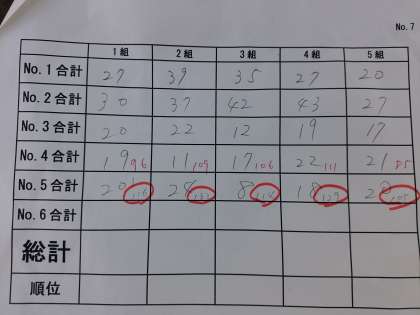 No. 7
1組 2組 3組 4組 5組
No. 1合計 27 39 35 27 20
No. 2合計 30 37 42 43 27
No. 3合計 20 22 12 19 17
No. 4合計 19 96 11 109 17 106 22 111 21 85
No. 5合計 20 116 8 114 18 129 20 105
No. 6合計
総計
順位